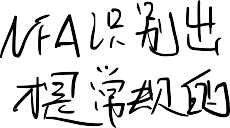 NFA识别出
提常规的